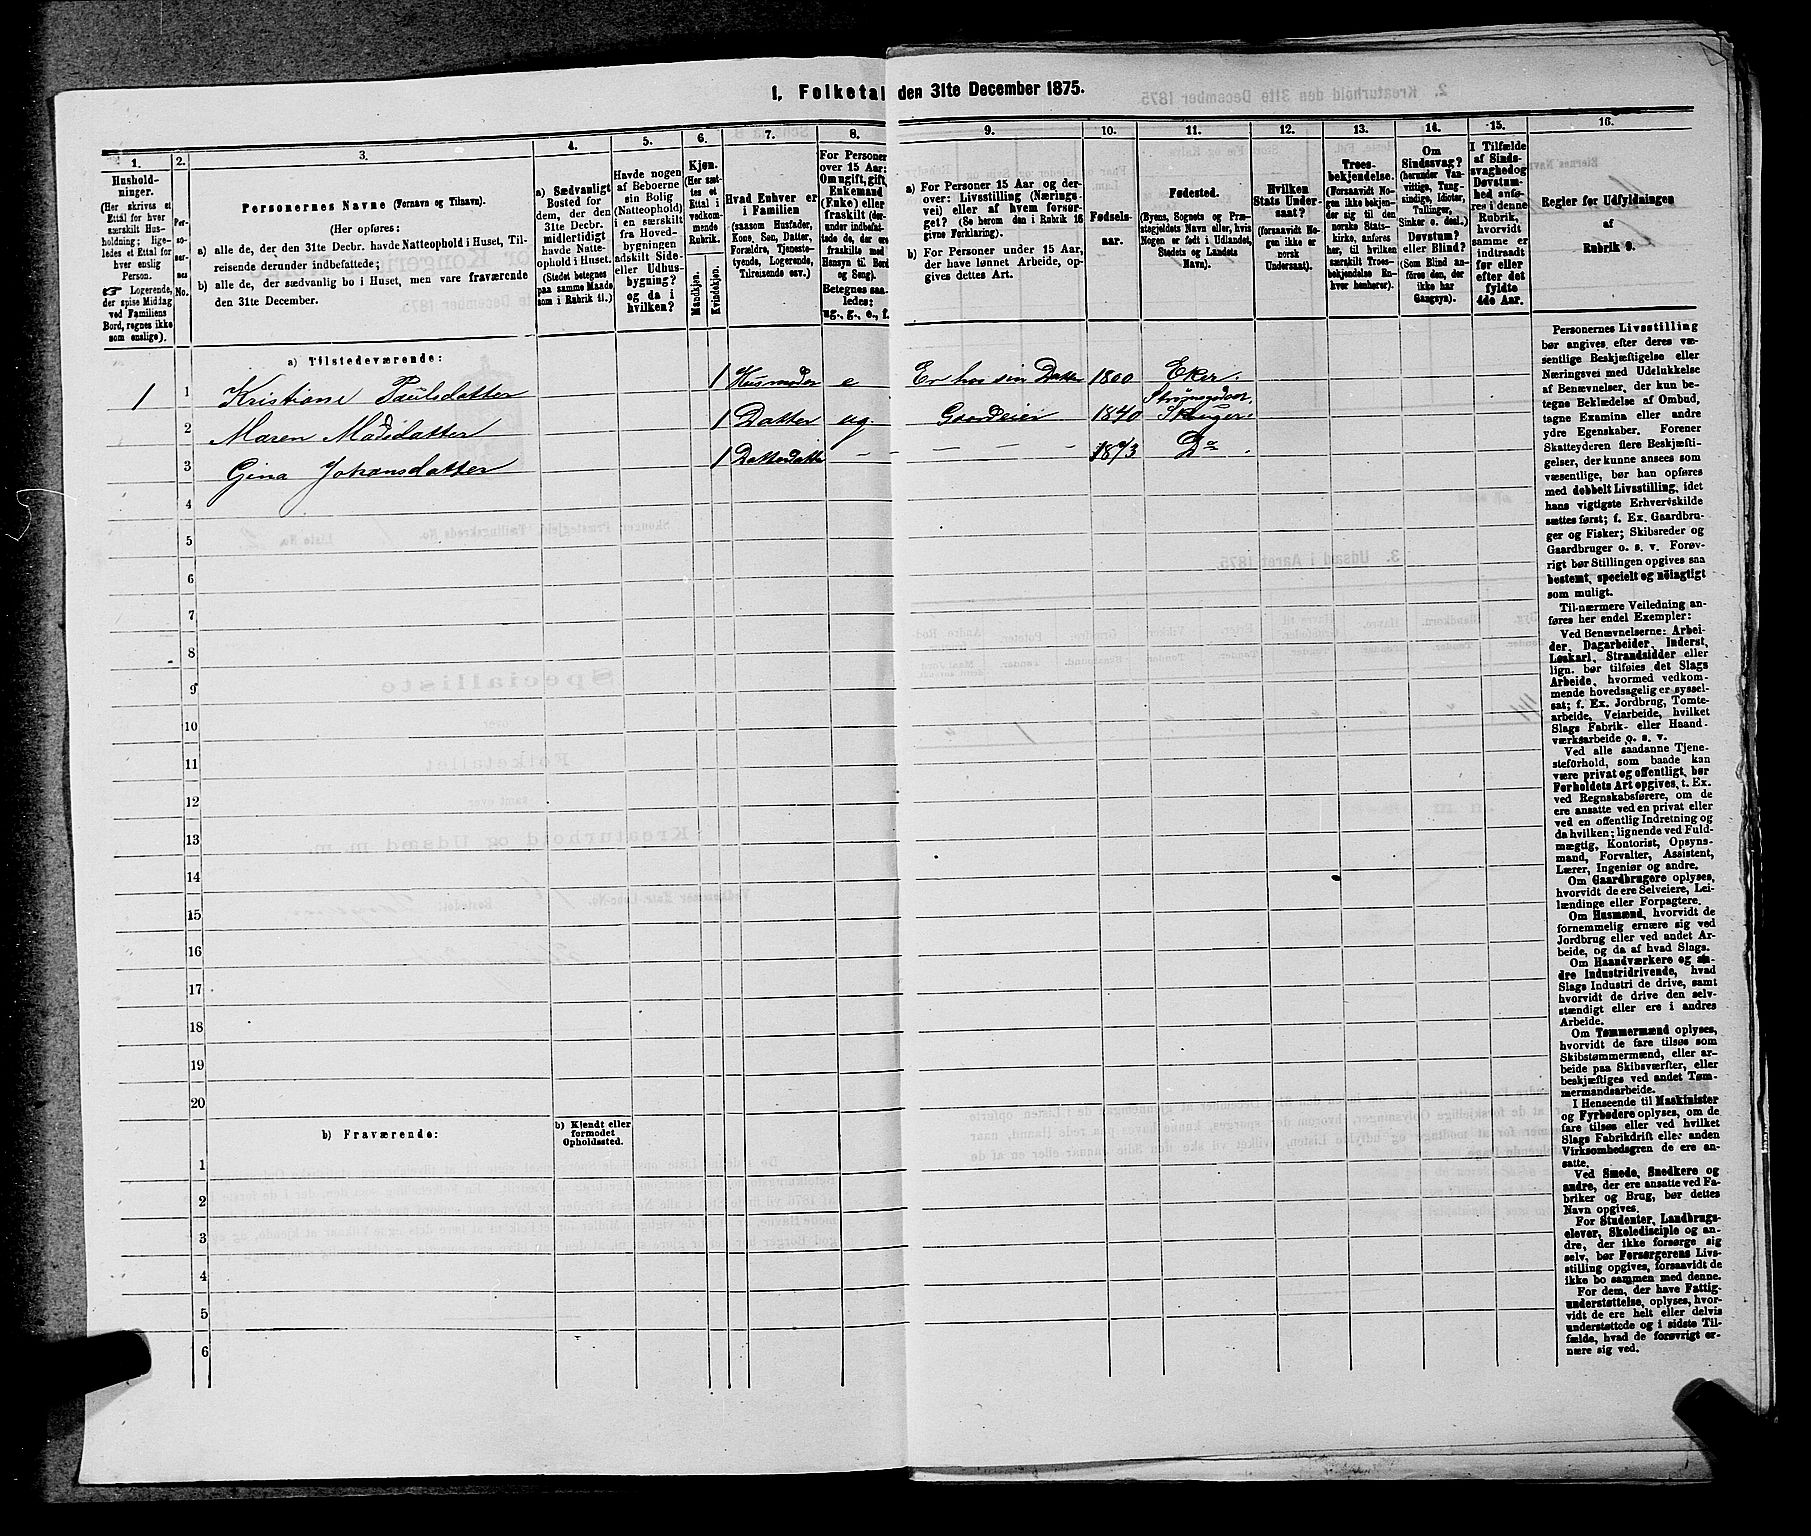 1. Folketal den 31te December 1875.
1.
Hushold-
ninger.
(Her skrives et
Ettal for hver
særskilt Hus-
holdning; lige-
ledes et Ettal for
hver enslig
Person.
☞ Logerende,
der spise Middag
ved Familiens
Bord, regnes ikke
som enslige).
2.
Per-
so-
ner-
nes
No.
3.
Personernes Navne (Fornavn og Tilnavn).
(Her opføres:
a) alle de, der den 31te Decbr. havde Natteophold i Huset, Til-
reisende derunder indbefattede;
b) alle de, der sædvanlig bo i Huset, men vare fraværende
den 31te December.
4.
a) Sædvanligt
Bosted for
dem, der den
31te Decbr.
midlertidigt
havde Natte-
ophold i Huset.
(Stedet betegnes
paa samme Maade
som i Rubrik 11.)
5.
Havde nogen
af Beboerne
sin Bolig
(Natteophold)
i en særskilt
fra Hoved-
bygningen
adskilt Side-
eller Udhus-
bygning?
og da i
hvilken?
6.
Kjøn.
(Her sæt-
tes et
Ettal i
vedkom-
mende
Rubrik.
Mandkjøn.
Kvindekjøn.
7.
Hvad Enhver er
i Familien
(saasom Husfader,
Kone, Søn, Datter,
Forældre, Tjeneste-
tyende, Logerende,
Tilreisende osv.)
8.
For Personer
over 15 Aar:
Om ugift, gift,
Enkemand
(Enke) eller
fraskilt (der-
under indbefat-
tede de, der ere
fraskilte med
Hensyn til Bord
og Seng).
Betegnes saa-
ledes:
ug., g., e., f.
9.
a) For Personer 15 Aar og der-
over: Livsstilling (Nærings-
vei) eller af hvem forsør-
get? (Se herom den i Rubrik 16
givne Forklaring).
b) For Personer under 15 Aar,
der have lønnet Arbeide, op-
gives dettes Art.
10.
Fødsels-
aar.
11.
Fødested.
(Byens, Sognets og Præ-
stegjeldets Navn eller, hvis
Nogen er født i Udlandet,
Stedets og Landets
Navn).
12.
Hvilken
Stats Under-
saat?
(forsaavidt No-
gen ikke er
norsk
Undersaat).
13.
Troes-
bekjendelse.
(Forsaavidt No-
gen ikke bekjen-
der sig til den
norske Stats-
kirke, anføres
her, til hvilken
særskilt Troes-
bekjendelse En-
hver henhører).
14.
Om
Sindssvag?
(herunder Van-
vittige, Tung-
sindige, Idioter,
Tullinger,
Sinker o. desl.)
Døvstum?
eller Blind?
(Som Blind an-
føres den, der
ikke har
Gangsyn).
15.
I Tilfælde
af Sinds-
svaghed og
Døvstum-
hed anfø-
res i denne
Rubrik,
hvorvidt
samme er
indtraadt
før eller
efter det
fyldte
4de Aar.
16.
Regler for Udfyldningen
af
Rubrik 9.
a) Tilstedeværende:
1 1 Kristiane Paulsdatter 1 Husmoder e Er hos sin Datter 1800 Eker.
2 Maren Madsdatter 1 Datter ug. Gaardeier 1840 Strømsgodset, Skouger.
3 Gina Johansdatter 1 Datterdatter — — — — 1873 Do.
4
5
6
7
8
9
10
11
12
13
14
15
16
17
18
19
20
b) Fraværende:
b) Kjendt eller
formodet
Opholdssted.
1
2
3
4
5
6
Personernes Livsstilling
bør angives efter deres væ-
sentlige Beskjæftigelse eller
Næringsvei med Udelukkelse
af Benævnelser, der kun be-
tegne Beklædelse af Ombud,
tagne Examina eller andre
ydre Egenskaber. Forener
Skatteyderen flere Beskjæfti-
gelser, der kunne ansees som
væsentlige, bør han opføres
med dobbelt Livsstilling, idet
hans vigtigste Erhvervskilde
sættes først; f. Ex. Gaardbru-
ger og Fisker; Skibsreder og
Gaardbruger o. s. v. Forøv-
rigt bør Stillingen opgives saa
bestemt, specielt og nøiagtigt
som muligt.
Til nærmere Veiledning an-
føres her endel Exempler:
Ved Benævnelserne: Arbei-
der, Dagarbeider, Inderst,
Løskarl, Strandsidder eller
lign. bør tilføies det Slags
Arbeide, hvormed vedkom-
mende hovedsagelig er syssel-
sat; f. Ex. Jordbrug, Tomte-
arbeide, Veiarbeide, hvilket
Slags Fabrik- eller Haand-
værksarbeide o. s. v.
Ved alle saadanne Tjene-
steforhold, som baade kan
være privat og offentligt, bør
Forholdets Art opgives, t. Ex.
ved Regnskabsførere, om de
ere ansatte ved en privat eller
ved en offentlig Indretning og
da hvilken; lignende ved Fuld-
mægtig, Kontorist, Opsyns-
mand, Forvalter, Assistent,
Lærer, Ingeniør og andre.
Om Gaardbrugere oplyses,
hvorvidt de ere Selveiere, Lei-
lændinge eller Forpagtere.
Om Husmænd, hvorvidt de
fornemmelig ernære sig ved
Jordbrug eller ved andet Ar-
beide, og da af hvad Slags.
Om Haandværkere og an-
dre Industridrivende, hvad
Slags Industri de drive, samt
hvorvidt de drive den selv-
stændigt eller ere i andres
Arbeide.
Om Tømmermænd oplyses,
hvorvidt de fare tilsøs som
Skibstømmermænd, eller ar-
beide paa Skibsværfter, eller
beskjæftiges ved andet Tøm-
mermandsarbeide.
I Henseende til Maskinister
og Fyrbødere oplyses, om de
fare tilsøs eller ved hvilket
Slags Fabrikdrift eller anden
Virksomhedsgren de ere an-
satte.
Ved Smede, Snedkere og
andre, der ere ansatte ved Fa-
briker og Brug, bør dettes
Navn opgives.
For Studenter, Landbrugs-
elever, Skoledisciple og an-
dre, der ikke forsørge sig
selv, bør Forsørgerens Livs-
stilling opgives, forsaavidt de
ikke bo sammen med denne.
For dem, der have Fattig-
understøttelse, oplyses, hvor-
vidt de ere helt eller delvis
understøttede og i sidste Til-
fælde, hvad de forøvrigt er-
nære sig ved.